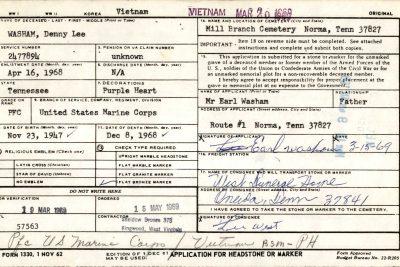 WW I WW II KOREA Vietnam VIETNAM MAR 20 1969 ORIGINAL
NAME OF DECEASED - LAST - FIRST - MIDDLE (Print or Type)
WASHAM, Denny Lee
NAME AND LOCATION OF CEMETERY (City and State)
Mill Branch Cemetery Norma, Tenn 37827
SERVICE NUMBER
PENSION OR VA CLAIM NUMBER
unknown
Item 18 on reverse must be completed. See attached instructions and complete and submit both copies.
ENLISTMENT DATE (Month, day, year)
Apr 16, 1968
DISCHARGE DATE (Month, day, year)
N/A
This application is submitted for a stone or marker for the unmarked
grave of a deceased member or former member of the Armed Forces of the
U.S., soldier of the Union or Confederate Armies of the Civil War or for
an unmarked memorial plot for a non-recoverable deceased member.
I hereby agree to accept responsibility for properly placement at the
grave or memorial plot at no expense to the Government.
STATE
Tennessee
DECORATIONS
Purple Heart
NAME OF APPLICANT (Print or Type)
RELATIONSHIP
Mr Earl Washam
Father
GRADE
BRANCH OF SERVICE, COMPANY, REGIMENT, DIVISION
PFC United States Marine Corps
ADDRESS OF APPLICANT (Street address, City and State)
Route #1 Norma, Tenn 37827
DATE OF BIRTH (Month, day, year)
Nov 23, 1947
DATE OF DEATH (Month, day, year)
Dec 8, 1968
SIGNATURE OF APPLICANT
DATE
Earl Washam 3-15-69
RELIGIOUS EMBLEM (Check one)
CHECK TYPE REQUIRED
LATIN CROSS (Christian)
STAR OF DAVID (Hebrew)
NO EMBLEM
UPRIGHT MARBLE HEADSTONE
FLAT MARBLE MARKER
FLAT GRANITE MARKER
FLAT BRONZE MARKER
FREIGHT STATION
NAME OF CONSIGNEE WHO WILL TRANSPORT STONE OR MARKER
West Funeral Home
DO NOT WRITE HERE
ADDRESS OF CONSIGNEE (Street address, City and State)
Oneida, Tenn 37841
19 MAR 1969
15 MAY 1969
57563
Meadow Bronze 378
Kingwood, West Virginia
SIGNATURE OF CONSIGNEE
Pfc US Marine Corps / Vietnam BSM-PH
FORM 1330, 1 NOV 62
APPLICATION FOR HEADSTONE OR MARKER
Form Approved
Budget Bureau No. 22-R205